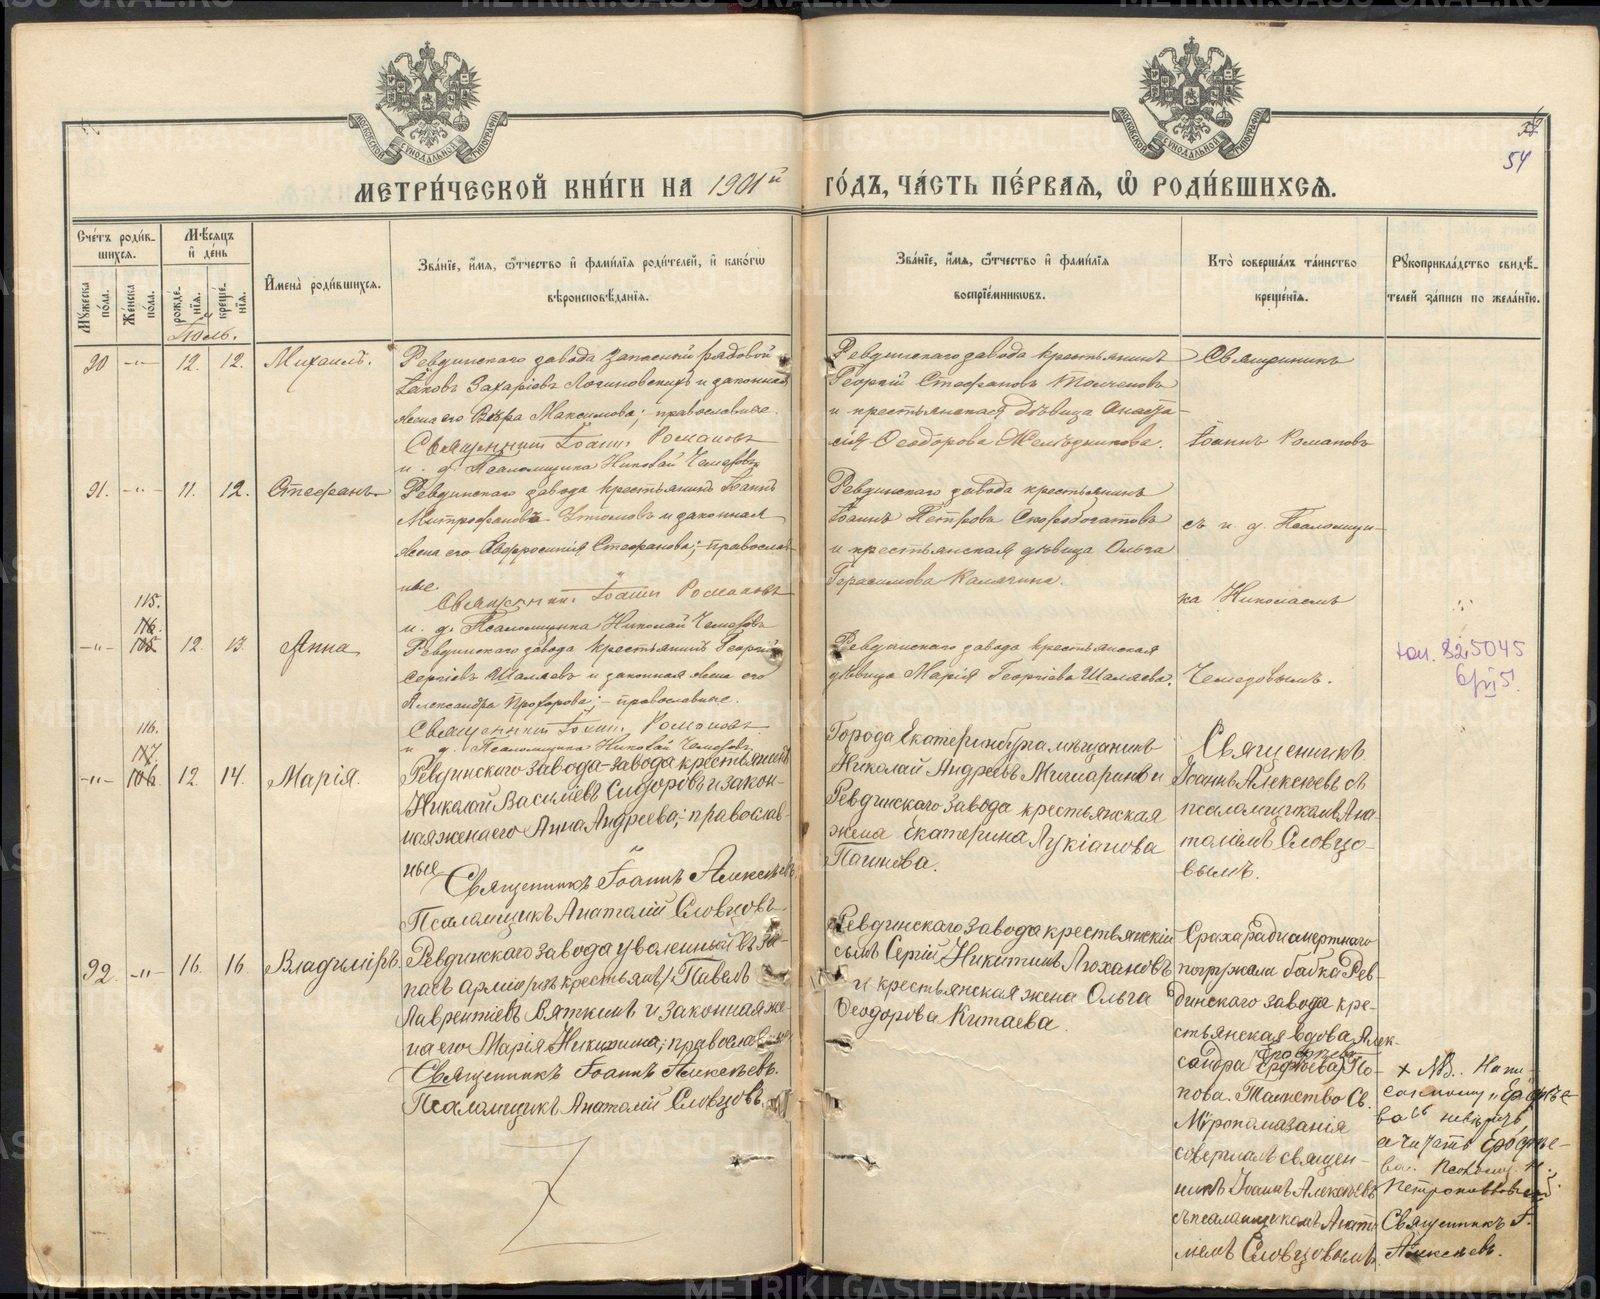 54
МЕТРИ́ЧЕСКОЙ КНИ́ГИ НА 1901й ГО́ДЪ, ЧА́СТЬ ПЕ́РВАЯ, Ѡ҆ РОДИ́ВШИХСЯ.
Сче́тъ роди́в-
шихся.
Мѣ́сяцъ
и҆ де́нь
Мꙋ́жеска по́ла.
Же́нска по́ла.
рожде́-
нїя.
креще́-
нїя.
И҆мена̀ роди́вшихся.
Зва́нїе, и҆́мя, ѻ҆́тчество и҆ фами́лїя роди́телей, и҆ како́гѡ
вѣроисповѣ́данїя.
Зва́нїе, и҆́мя, ѻ҆́тчество и҆ фами́лїя
воспрїе́мниковъ.
Кто̀ соверша́лъ та́инство
креще́нїя.
Рꙋкоприкла́дство свидѣ́-
телей за́писи по жела́нїю.
Іюль.
90 -"- 12. 12. Михаилъ.
Ревдинскаго завода запасный рядовой
Іаковъ Захаріевъ Логиновскихъ и законная
жена его Вѣра Максимова; православные.
Священникъ Іоаннъ Романовъ
и. д. Псаломщика Николай Чемезовъ
Ревдинскаго завода крестьянинъ
Георгій Стефановъ Толченовъ
и крестьянская дѣвица Анаста-
сія Ѳеодорова Желѣзникова.
Священникъ
Іоаннъ Романовъ
91. -"- 11. 12. Стефанъ
Ревдинскаго завода крестьянинъ Іоаннъ
Митрофановъ Утюмовъ и законная
жена его Евфросинія Стефанова; православ-
ные
Священникъ Іоаннъ Романовъ
и. д. Псаломщика Николай Чемезовъ
Ревдинскаго завода крестьянинъ
Іоаннъ Петровъ Скоробогатовъ
и крестьянская дѣвица Ольга
Герасимова Калягина.
съ и д. Псаломщи-
ка Николаемъ
115.
116
105
-"- 12. 13. Анна
Ревдинскаго завода крестьянинъ Георгій
Сергіевъ Шаляевъ и законная жена его
Александра Прохорова; православные.
Священникъ Іоаннъ Романовъ
и д. Псаломщика Николай Чемезовъ
Ревдинскаго завода крестьянская
дѣвица Марія Георгіева Шаляева.
Чемезовымъ.
116.
117
106
-"- 12 14. Марія.
Ревдинскаго завода-завода крестьянинъ
Николай Васильевъ Сидоровъ и закон-
ная жена его Анна Андреева; православ-
ные
Священникъ Іоаннъ Алексѣевъ.
Псаломщикъ Анатолій Словцовъ
Города Екатеринбурга мѣщанинъ
Николай Андреевъ Мишаринъ и
Ревдинскаго завода крестьянская
жена Екатерина Лукіанова
Священникъ
Іоаннъ Алексѣевъ съ
псаломщикомъ Ана-
толіемъ Словцо-
вымъ.
92. -"- 16. 16 Владиміръ
Ревдинскаго завода уволенный въ за-
пасъ арміи /изъ крестьянъ/ Павелъ
Лаврентіевъ Вяткинъ и законная же-
на его Марія Никитина; православные
Священникъ Іоаннъ Алексѣевъ.
Псаломщикъ Анатолій Словцовъ.
Ревдинскаго завода крестьянскій
сынъ Сергій Никитинъ Люхановъ
и крестьянская жена Ольга
Ѳеодорова Китаева.
Страха ради смертнаго
погружала бабка Рев-
динскаго завода кре-
стьянская вдова Алек-
сандра По-
пова. Таинство Св.
Мѵропомазанія
совершалъ священ-
никъ Іоаннъ Алексѣевъ
съ псаломщикомъ Анато-
ліемъ Словцовымъ.
Священникъ І.
Алексѣевъ.
METRIKI.GASO-URAL.RU